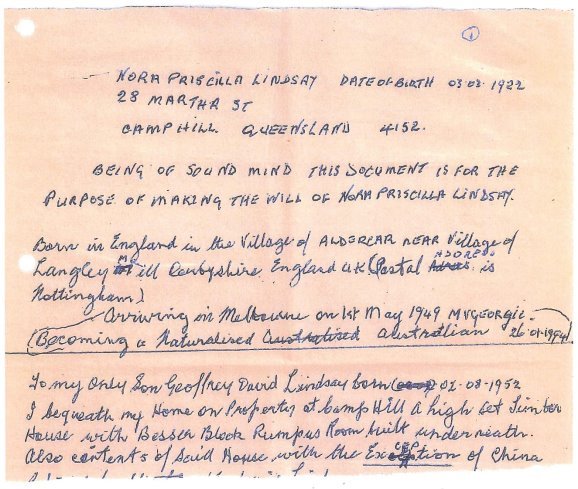 1
NORA PRISCILLA LINDSAY DATE OF BIRTH 03·03·1922
28 MARTHA ST
CAMP HILL. QUEENSLAND 4152.
BEING OF SOUND MIND THIS DOCUMENT IS FOR THE
PURPOSE OF MAKING THE WILL OF NORA PRISCILLA LINDSAY.
Born in England in the Village of ALDERCAR NEAR Village of
Langley Mill Derbyshire England UK (Postal ADDRESS is
Nottingham)
Arriwing in Melbourne on 1st May 1949 MV GEORGIC.
(Becoming a Naturalised Australised Australian 26·01·1994)
To my only Son Geoffrey David Lindsay born 02-08-1952
I bequeath my Home on Property at Camp Hill A high Set Timber
House with Besser Block Rumpus Room built underneath.
Also contents of Said House with the Exception of China